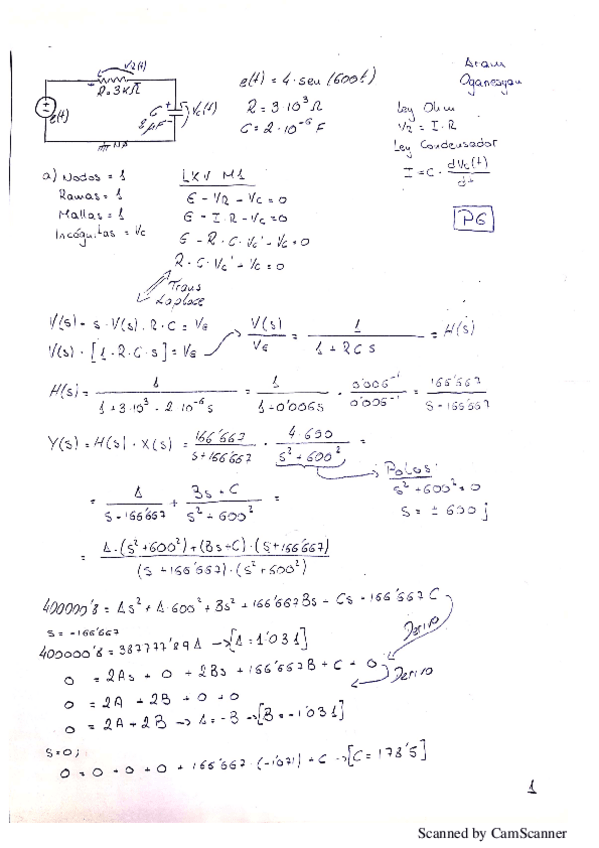 V2(t)
R.3KΩ
e(t)
C
2μF
Vc(t)
e(t) = 4·sen(600t)
R = 3·10³ Ω
C = 2·10⁻⁶ F
Aram
Oganesyan
Ley Ohm
VR = I·R
Ley Condensador
I = C · dVc(t)/dt
P6
a) Nodos = 1
Ramas = 1
Mallas = 1
Incógnitas = Vc
LKV M1
E - VR - Vc = 0
E - I·R - Vc = 0
E - R·C·Vc' - Vc = 0
R·C·Vc' + Vc = 0
Trans
Laplace
V(s) + s·V(s)·R·C = VE
V(s)·[1+R·C·s] = VE
V(s)/VE = 1/(1+RCs) = H(s)
H(s) = 1/(1+3·10³·2·10⁻⁶s) = 1/(1+0'006s) · 0'006⁻¹/0'006⁻¹ = 166'667/(s+166'667)
Y(s) = H(s)·X(s) = 166'667/(s+166'667) · 4·600/(s²+600²) =
Polos:
s²+600²=0
s = ± 600j
= A/(s+166'667) + (Bs+C)/(s²+600²) =
= (A·(s²+600²)+(Bs+C)·(s+166'667))/((s+166'667)·(s²+600²))
400000'8 = As² + A·600² + Bs² + 166'667Bs + Cs + 166'667C
s = -166'667
Derivo
400000'8 = 387777'89A → [A = 1'031]
0 = 2As + 0 + 2Bs + 166'667B + C + 0
Derivo
0 = 2A + 2B + 0 + 0
0 = 2A + 2B → A = -B → [B = -1'031]
s=0;
0 = 0 + 0 + 0 + 166'667·(-1'071) + C → [C = 178'5]
1
Scanned by CamScanner